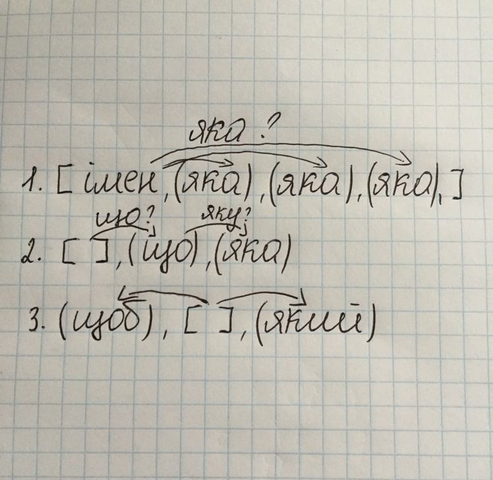 яка ?
1. [ імен, (яка), (яка), (яка), ]
що? яку?
2. [ ], (що), (яка)
3. (щоб), [ ], (який)